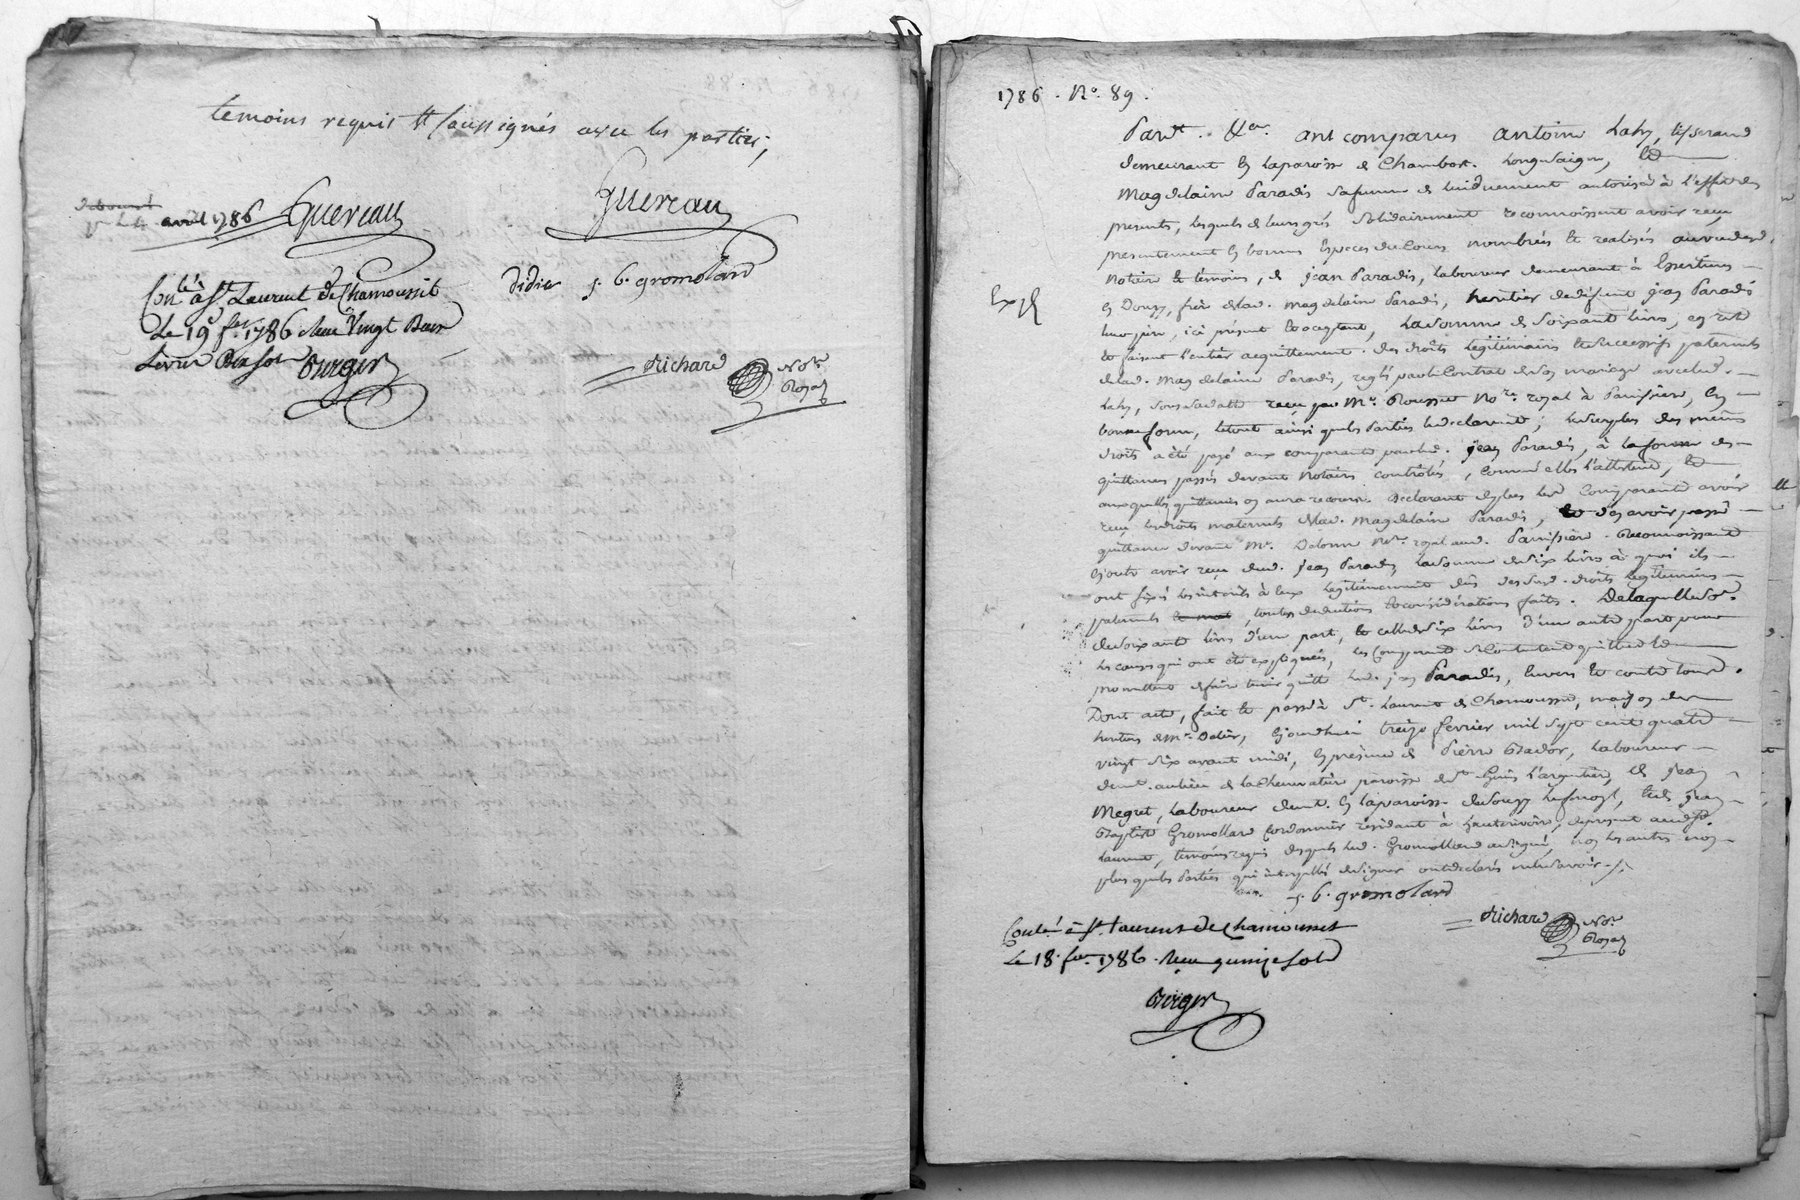 temoins requis et soussignés avec les parties;
avril 1786 Guereau
Guereau
Con.lé à St Laurent de Chamousset
Le 19 fer. 1786 Recu Vingt Deux
Berger
didier j. b. gromolard
Richard Not.re Royal
1786. No. 89.
Pardt. &er. ont comparus antoine Laby, tisserand
demeurant en la paroisse de Chambost Longesaigne, et
Magdelaine Paradis sa femme de lui duement autorisée à l'effet des
presents, lesquels de leurs grés solidairement reconnoissent avoir recu
presentement en bonnes Espèces du Cours nombrées et realisés au vu dud.
Notaire et témoins, de jean Paradis, Laboureur demeurant à Essertines
en Donzy, frère de lad. Magdelaine Paradis, heritier de défunt jean Paradis
leur père, ici présent et acceptant, la somme de soixante livres, en reste
et faisant l'entier acquittement des droits légitimaires et successifs paternels
de lad. Magdelaine Paradis, reglés par le Contrat de son mariage avec led.
Laby, sous sa datte reçu par Me. Rousset No.re royal à Panissiere, en
bonne forme, le tout ainsi que les Parties le declarent; le surplus des mêmes
droits a été payé aux comparants par led. jean Paradis, à la forme des
quittances passés devant Notaires, contrôlés, comme elles l'attestent, et
auxquelles quittances on aura recours. Declarant de plus les Comparants avoir
reçu les droits maternels de lad. Magdelaine Paradis, et des avoir passé
quittance devant Me. Delorme No.re royal aud. Panissiere. Reconnoissant
en outre avoir reçu dud. jean Paradis, la somme de six livres à quoi ils
ont fixés les interêts à eux légitimement dûs des susd. droits légitimaires
paternels, toutes deductions et considérations faites. De laquelle so.e
de soixante livres d'une part, et celle de six livres d'une autre part pour
les causes qui ont été expliquées, les Comparants se Contentent quittent et
promettent de faire tenir quitte led. jean Paradis, envers et contre tous.
Dont acte, fait et passé à St. Laurent de Chamousset, maison des
heritiers de Me. Odier, Ejourdhui treize fevrier mil sept cent quatre
vingt six avant midi, En présence de Pierre Bador, Laboureur
demt. au lieu de la Chevratière paroisse de St Genis l'argentière, de jean
Megret, Laboureur demt. en la paroisse de Souzy, et de jean
Baptiste Gromollard Cordonnier résidant à hauterivoire, de present aud. St.
Laurent, témoins requis desquels led. Gromollard a signé, non les autres non
plus que les Parties qui interpellés de signer ont declarés ne le savoir.
j. b. gromolard
Richard Not.re Royal
Contlé à St. Laurent de Chamousset
Le 18. fer. 1786. Recu quinze sols
Berger